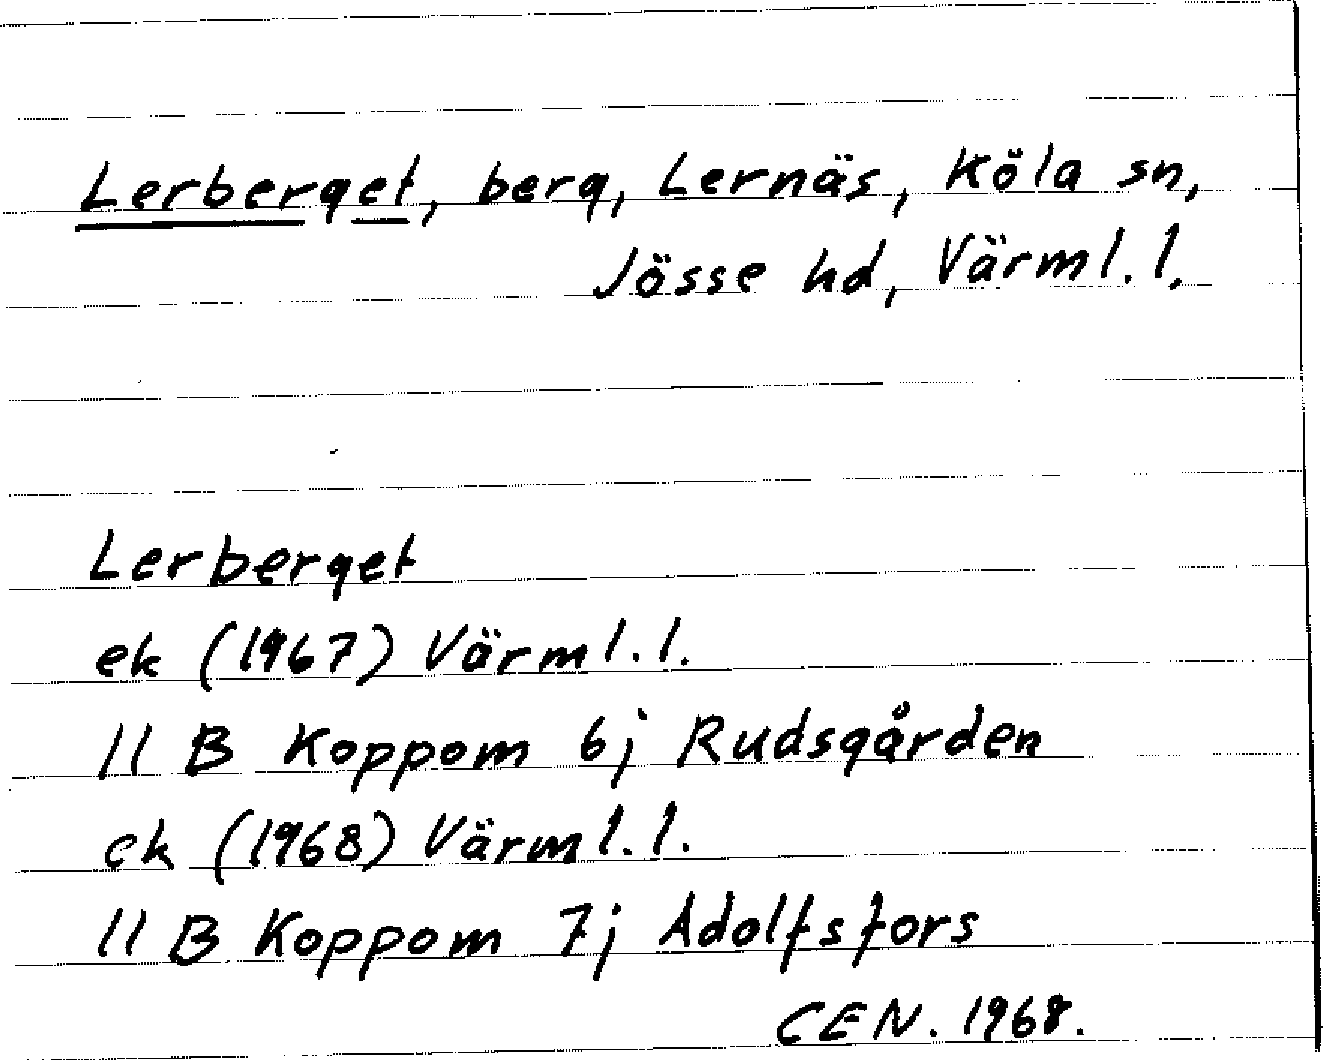 Lerberget, berg, Lernäs, Köla sn,
Jösse hd, Värml. l.
Lerberget
ek (1967) Värml. l.
11 B Koppom 6j Rudsgården
ek (1968) Värml. l.
11 B Koppom 7j Adolfsfors
CEN. 1968.